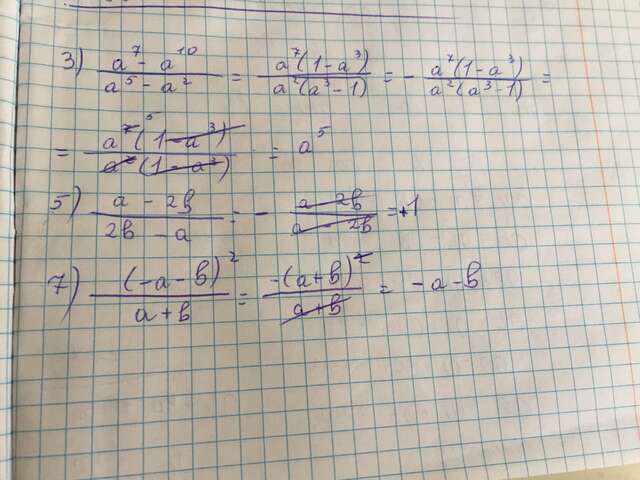 3) (a⁷ - a¹⁰)/(a⁵ - a²) = a⁷(1-a³)/a²(a³-1) = - a⁷(1-a³)/a²(a³-1) =
= a⁷⁵(1-a³)/a²(1-a³) = a⁵
5) (a - 2b)/(2b - a) = - (a - 2b)/(a - 2b) = 1
7) (-a-b)²/(a+b) = -(a+b)²/(a+b) = -a-b